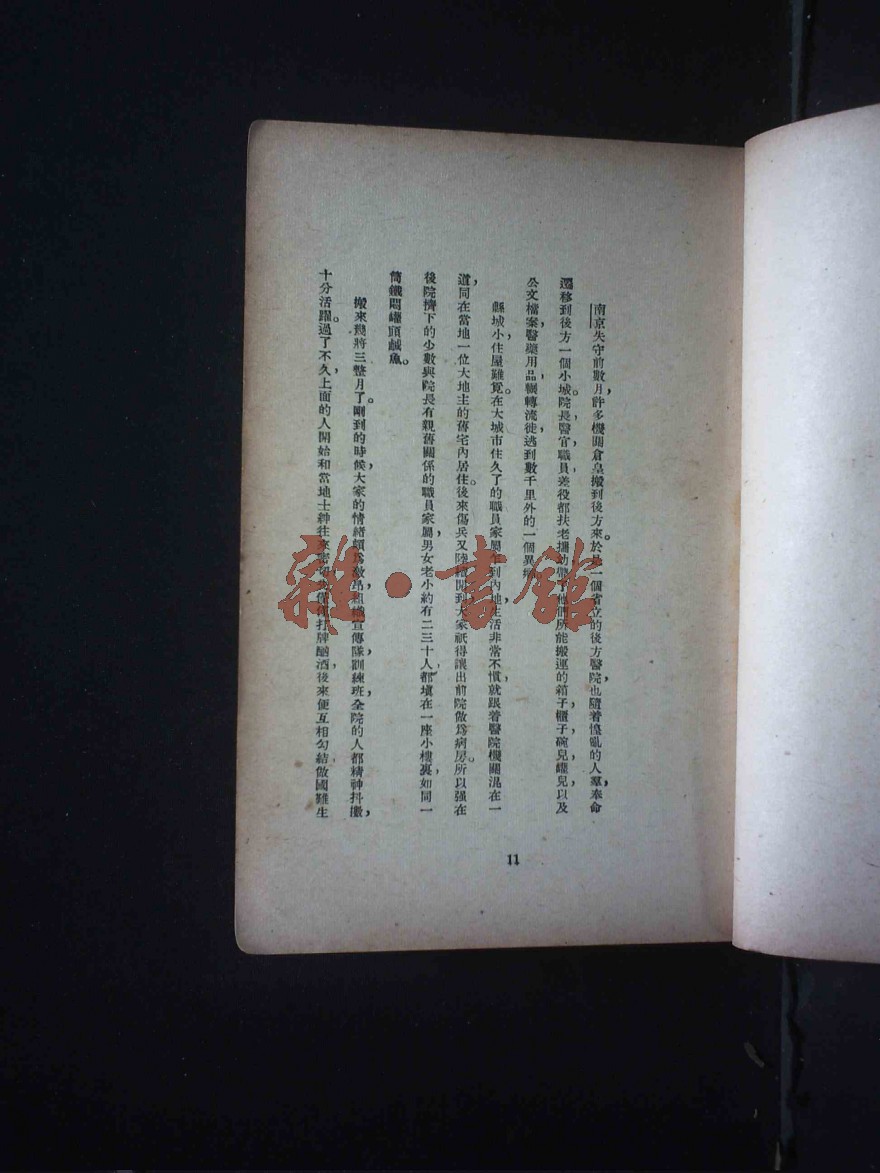 南京失守前數月，許多機關倉皇搬到後方來。於是一個省立的後方醫院，也隨着慌亂的人羣奉命
遷移到後方一個小城。院長，醫官，職員，差役都扶老攜幼，帶了他們所能搬運的箱子，櫃子，碗兒，罐兒，以及
公文檔案，醫藥用品，輾轉流徙，逃到數千里外的一個異
縣城小，住屋難覓。在大城市住久了的職員家屬乍到內地，生活非常不慣，就跟着醫院機關混在一
道，同在當地一位大地主的舊宅內居住。後來傷兵又陸續開到，大家祇得讓出前院做爲病房。所以强在
後院擠下的少數與院長有親舊關係的職員家屬，男女老小約有二三十人，都塡在一座小樓裏，如同一
筒鐵悶罐頭鹹魚。
搬來幾將三整月了。剛到的時候，大家的情緒頗爲激昂，組織宣傳隊，訓練班，全院的人都精神抖擻，
十分活躍。過了不久，上面的人開始和當地士紳往來
打牌酗酒，後來便互相勾結做國難生
11
雜·書館